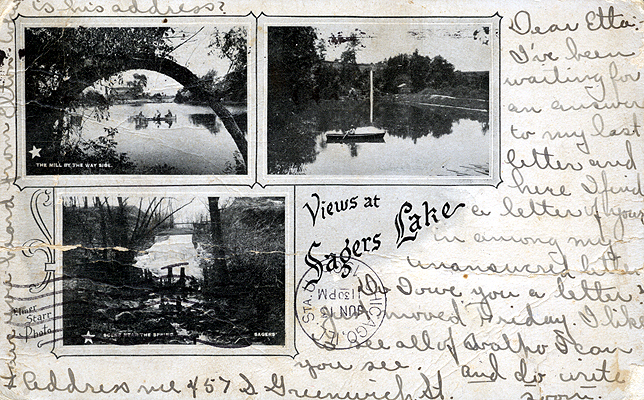 is his address?
Dear Etta,
I've been
waiting for
an answer
to my last
letter and
here I find
a letter of yours
in among my
unanswered letters
Do I owe you a letter.
moved Friday. I like
to see all of Valpo I can
you see. and do write
soon.
Address me 457 S Greenwich St.
Have you heard from
THE MILL BY THE WAY SIDE.
Views at
Sagers Lake
SCENE NEAR THE SPRING
SAGERS
Elmer
Starr
Photo
CHICAGO, ILL.
STA.
JUN 13
1130PM